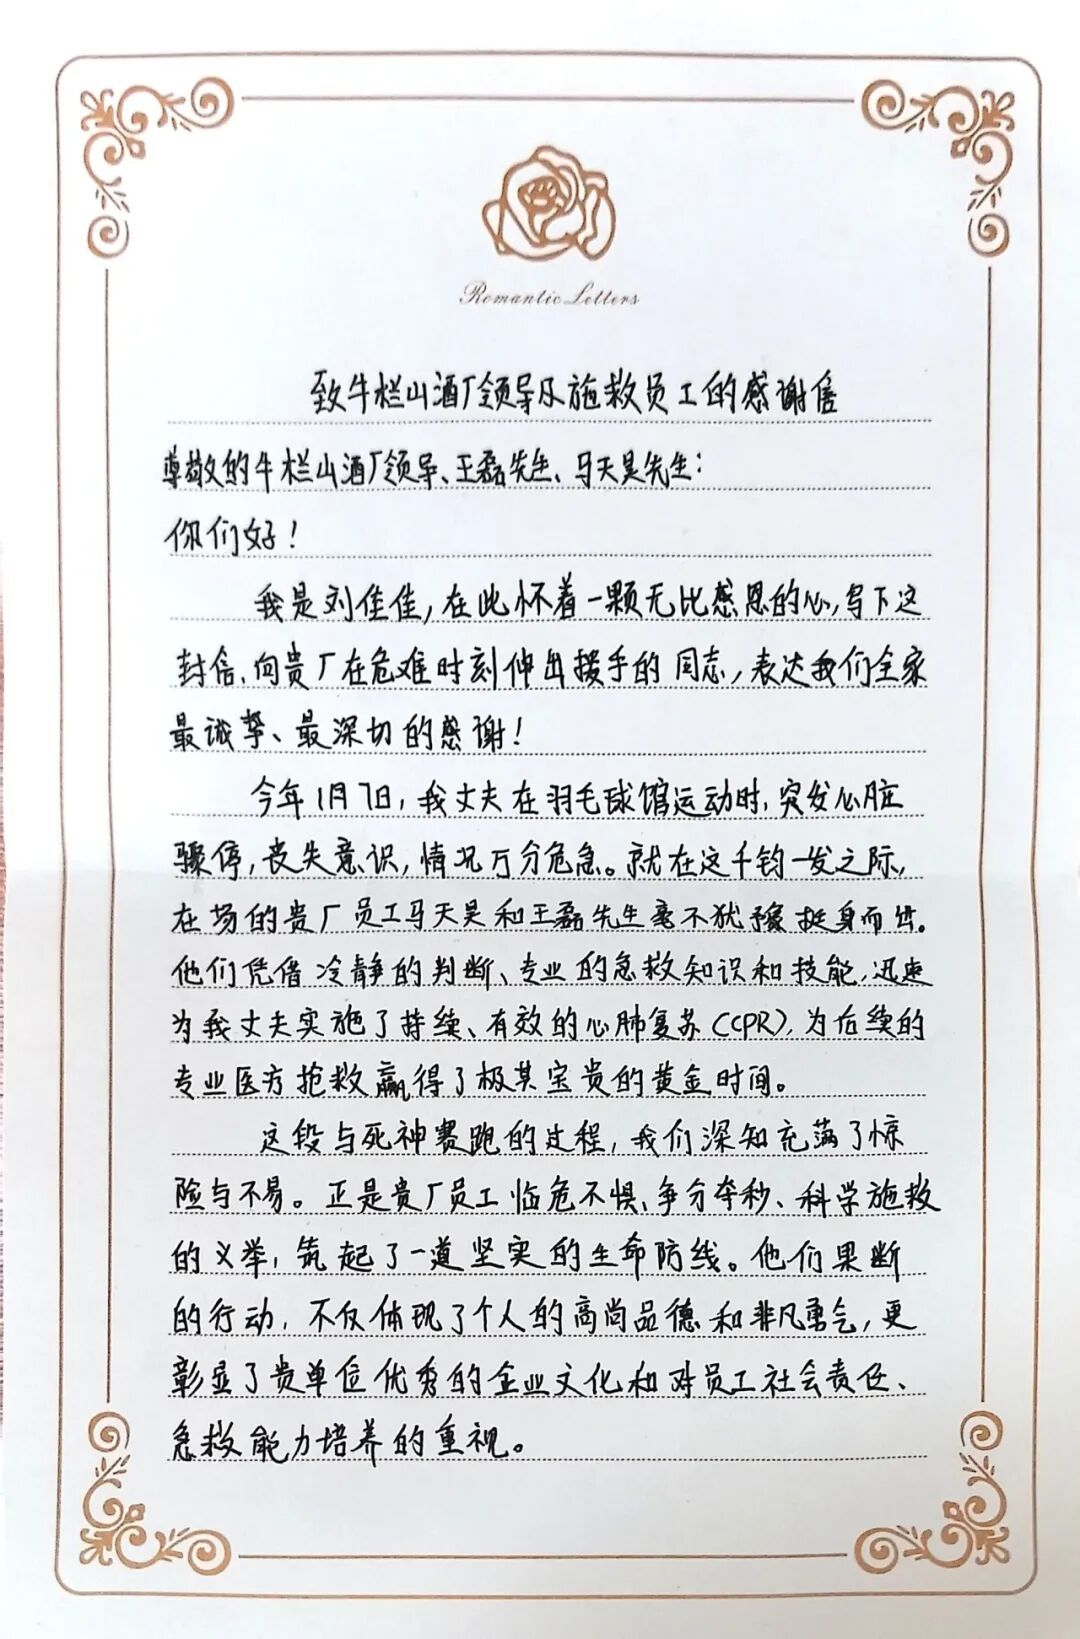 Romantic Letters
致牛栏山酒厂领导及施救员工的感谢信
尊敬的牛栏山酒厂领导、王磊先生、马天昊先生：
你们好！
我是刘佳佳，在此怀着一颗无比感恩的心，写下这
封信，向贵厂在危难时刻伸出援手的同志，表达我们全家
最诚挚、最深切的感谢！
今年1月7日，我丈夫在羽毛球馆运动时，突发心脏
骤停，丧失意识，情况万分危急。就在这千钧一发之际，
在场的贵厂员工马天昊和王磊先生毫不犹豫挺身而出。
他们凭借冷静的判断、专业的急救知识和技能，迅速
为我丈夫实施了持续、有效的心肺复苏（CPR），为后续的
专业医方抢救赢得了极其宝贵的黄金时间。
这段与死神赛跑的过程，我们深知充满了惊
险与不易。正是贵厂员工临危不惧、争分夺秒、科学施救
的义举，筑起了一道坚实的生命防线。他们果断
的行动，不仅体现了个人的高尚品德和非凡勇气，更
彰显了贵单位优秀的企业文化和对员工社会责任、
急救能力培养的重视。